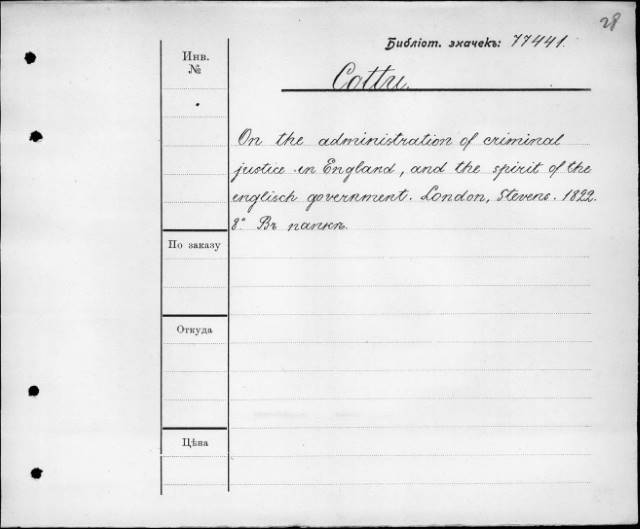 28
Библіот. значекъ: 77441.
Инв.
№
Cottu.
On the administration of criminal
justice in England, and the spirit of the
englisch government. London, Stevens. 1822.
8° Въ папкѣ.
По заказу
Откуда
Цѣна